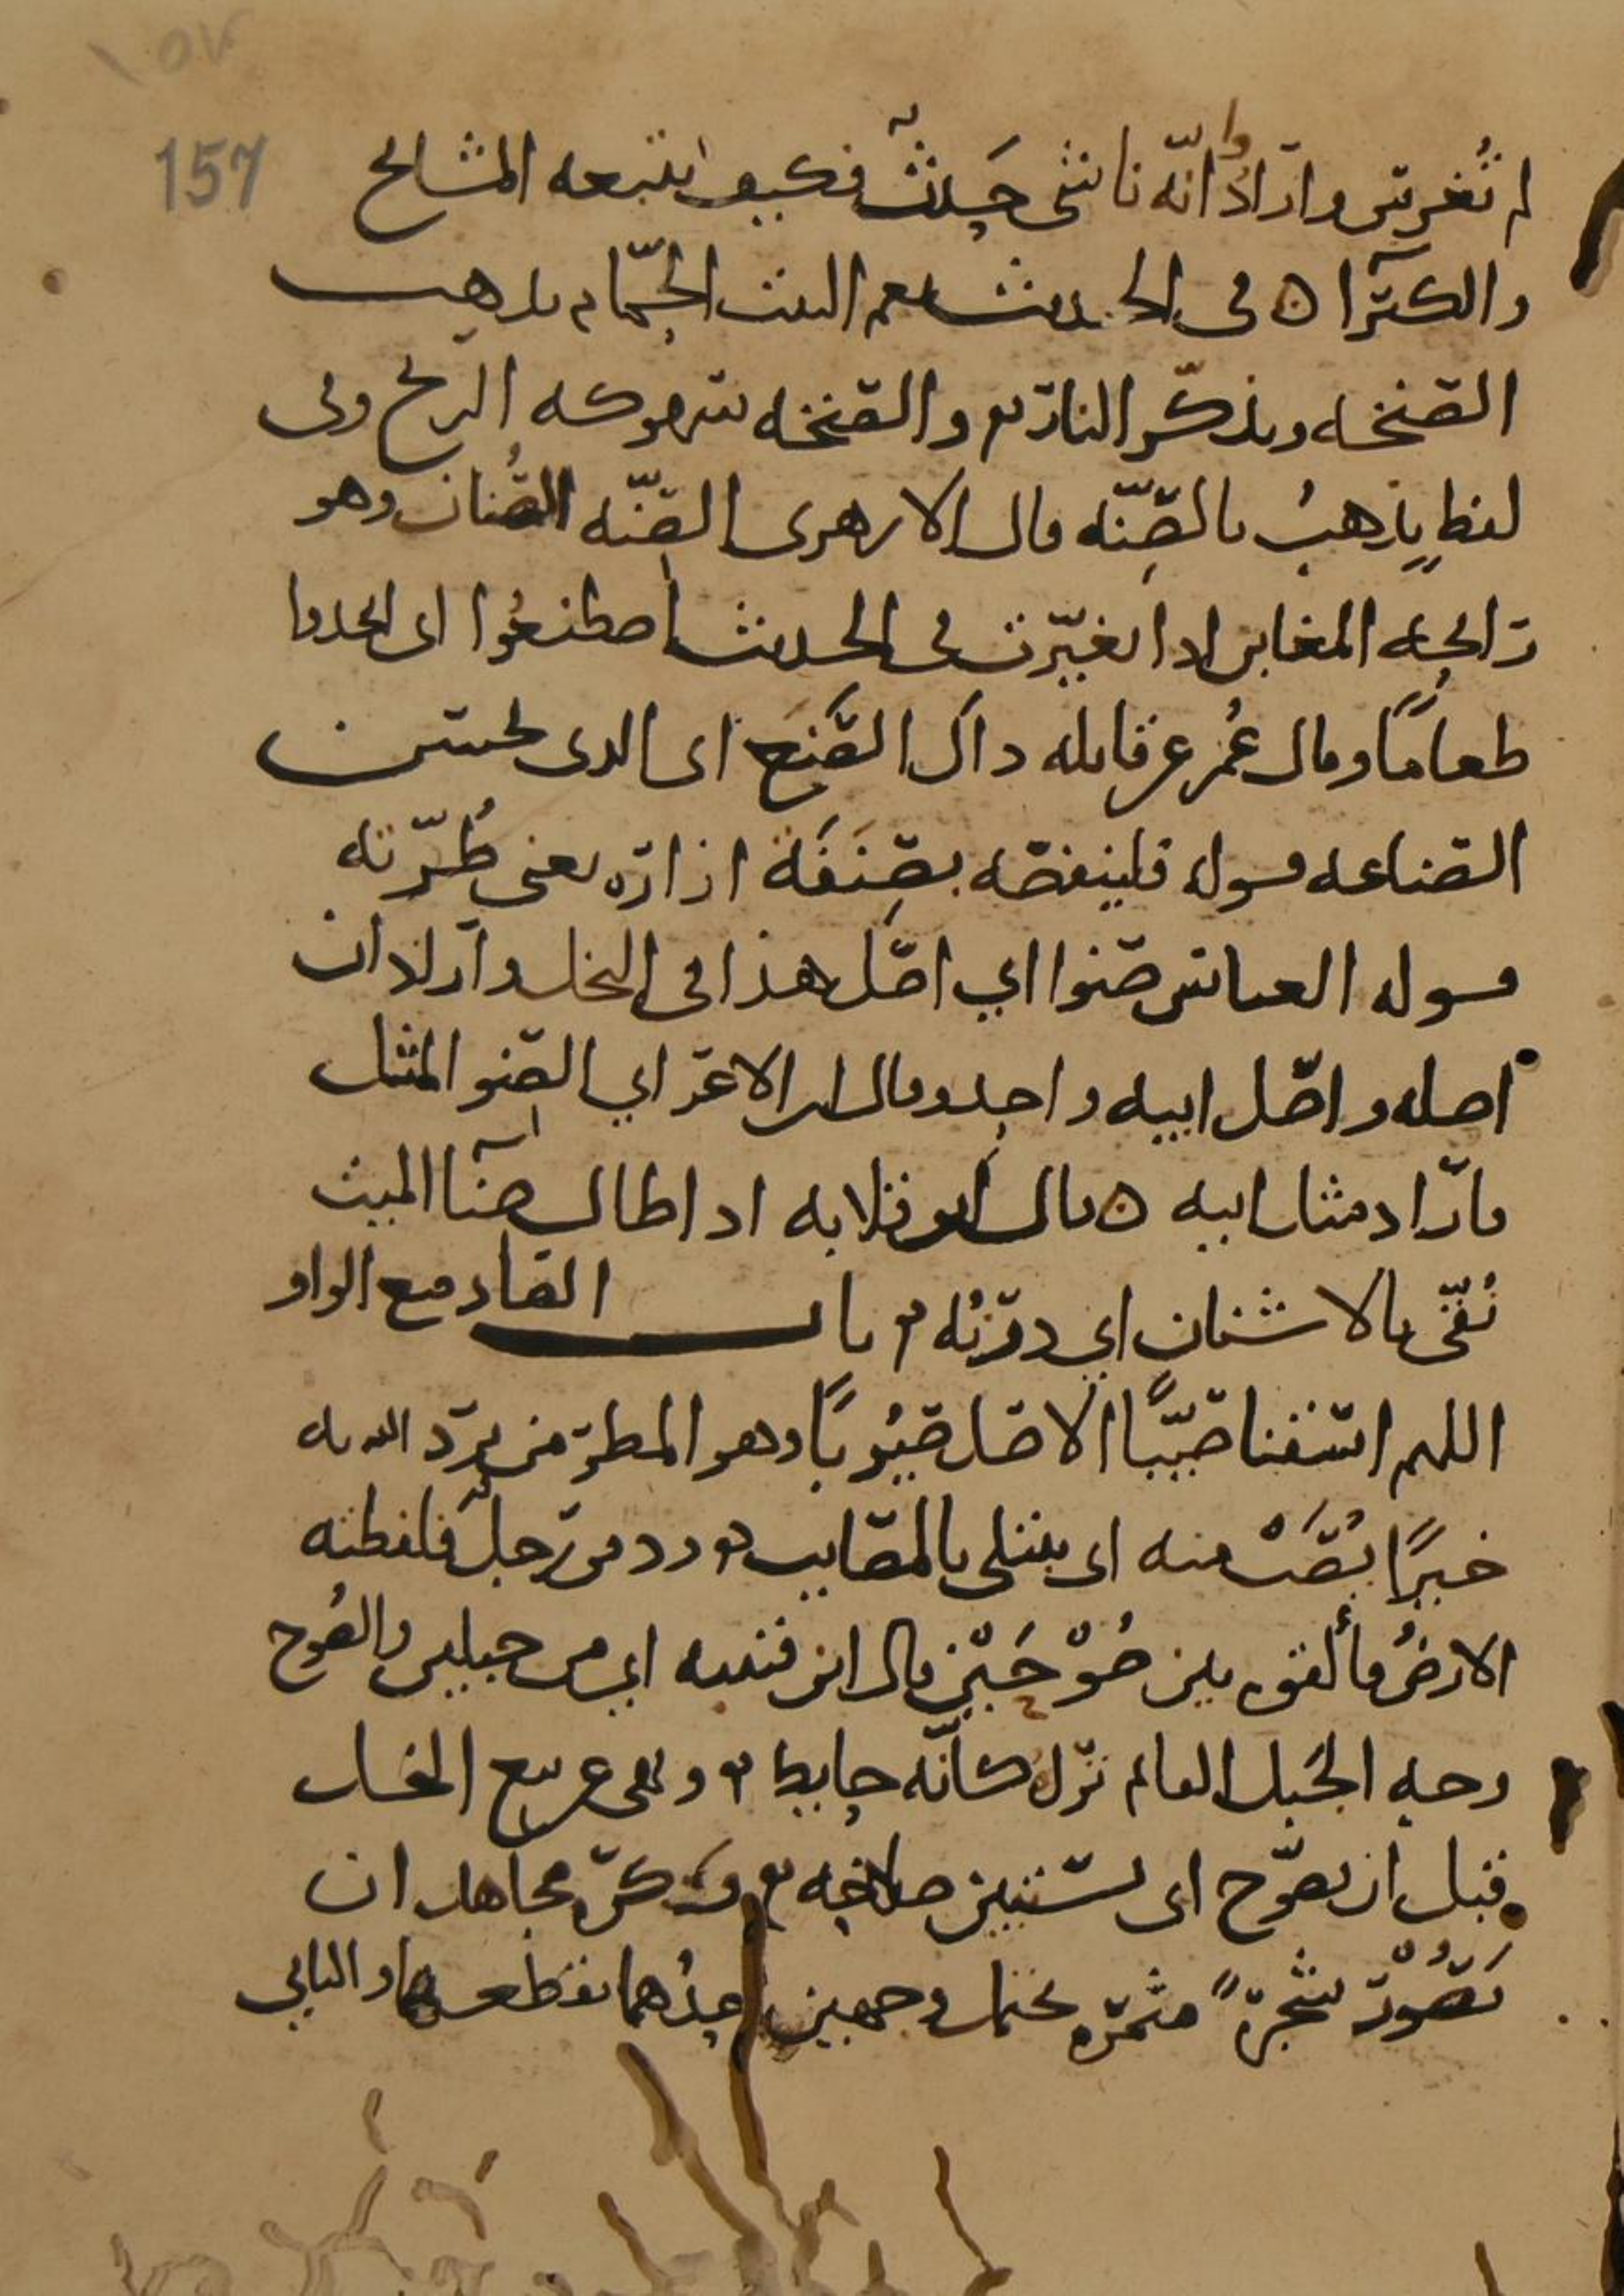 ١٥٧
157
لم تُغرس وارادوا انّه ناشى حَدثٌ فكيف تتبعه المشايخ
والكبرآ ٥ في الحديث نعم البيت الحمّام يذهب
الصنخه ويذكّر النار والصنخه سهوكه الريح وفى
لفظٍ يذهبُ بالصِنّه قال الازهرى الصِنّه الصُنان وهو
رايحه المغابن اذا تغيّرت في الحديث اصطنعُوا اى اتخذوا
طعامًا وقال عُمر عن قاتله ذاك الصَنَع اى الذى يحسن
الصناعه قوله فلينفضه بصِنَفَة ازاره يعنى طُرّته
قوله العباس صنوا ابي اصل هذا في النخل واراد ان
اصله واصل ابيه واحد وقال ابن الاعرابي الصِنو المثل
فاراد مثل ابيه ٥ قال ابو قلابه اذا طال صنآ الميت
نُقّى بالاشنان اي درنُه باب الصاد مع الواو
اللهم اسقنا صَيّبًا الاصل صَيْوبًا وهو المطر من يرد الله به
خيرًا يُصَب منه اى يبتلى بالمصايب ودفن رجلٌ فلفظته
الارضُ فألقوه بين صُوْحَيْن قال ابن قتيبه اي بين جبلين والصُوح
وجه الجَبل القايم تَرَاه كأنّه حايط ونهى عن بيع النخل
قبل ان يصوّح اى يستبين صلاحه وكره مجاهد ان
تَصُوْر شجرةً مثمره يحتمل وجهين احدُهما نقطعها والثاني